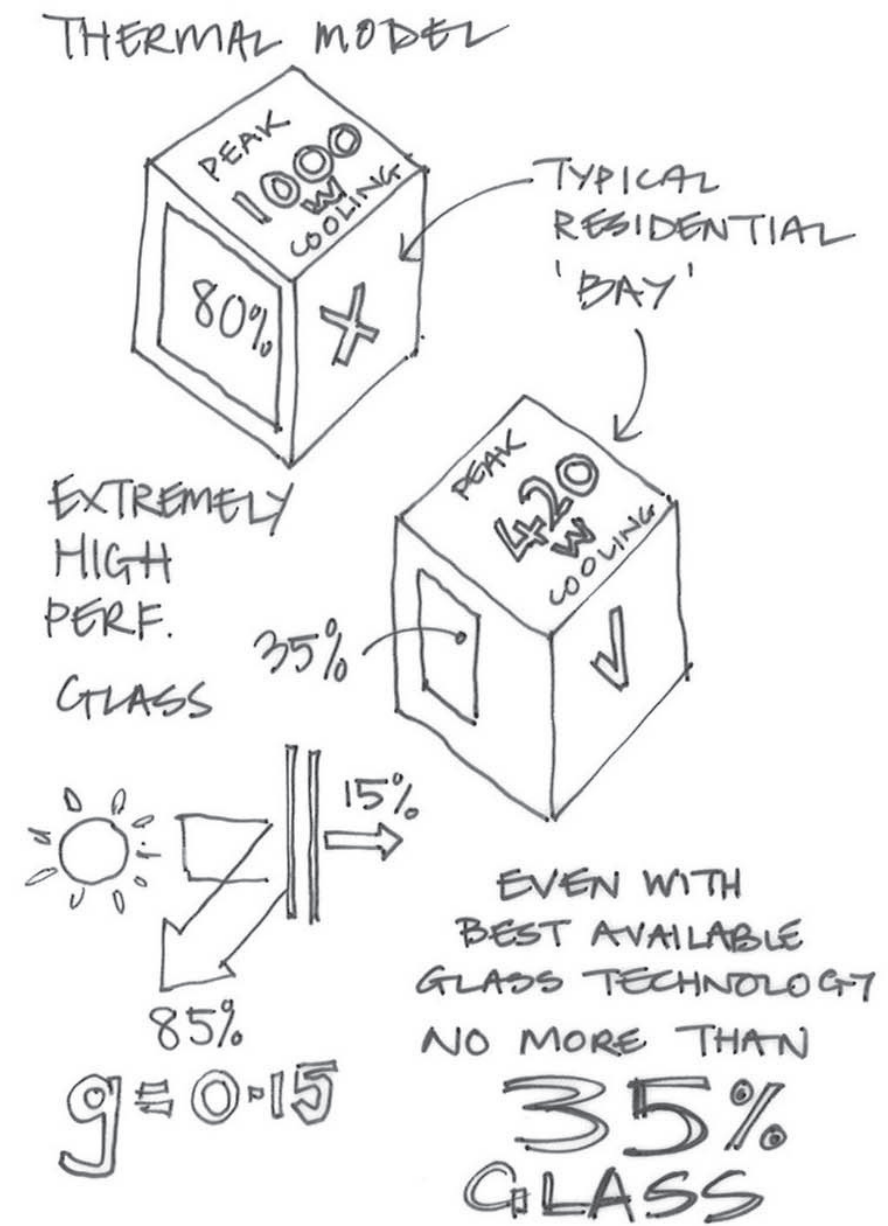 THERMAL MODEL
PEAK
1000
W
COOLING
80%
X
TYPICAL
RESIDENTIAL
'BAY'
PEAK
420
W
COOLING
35%
EXTREMELY
HIGH
PERF.
GLASS
15%
85%
g=0.15
EVEN WITH
BEST AVAILABLE
GLASS TECHNOLOGY
NO MORE THAN
35%
GLASS